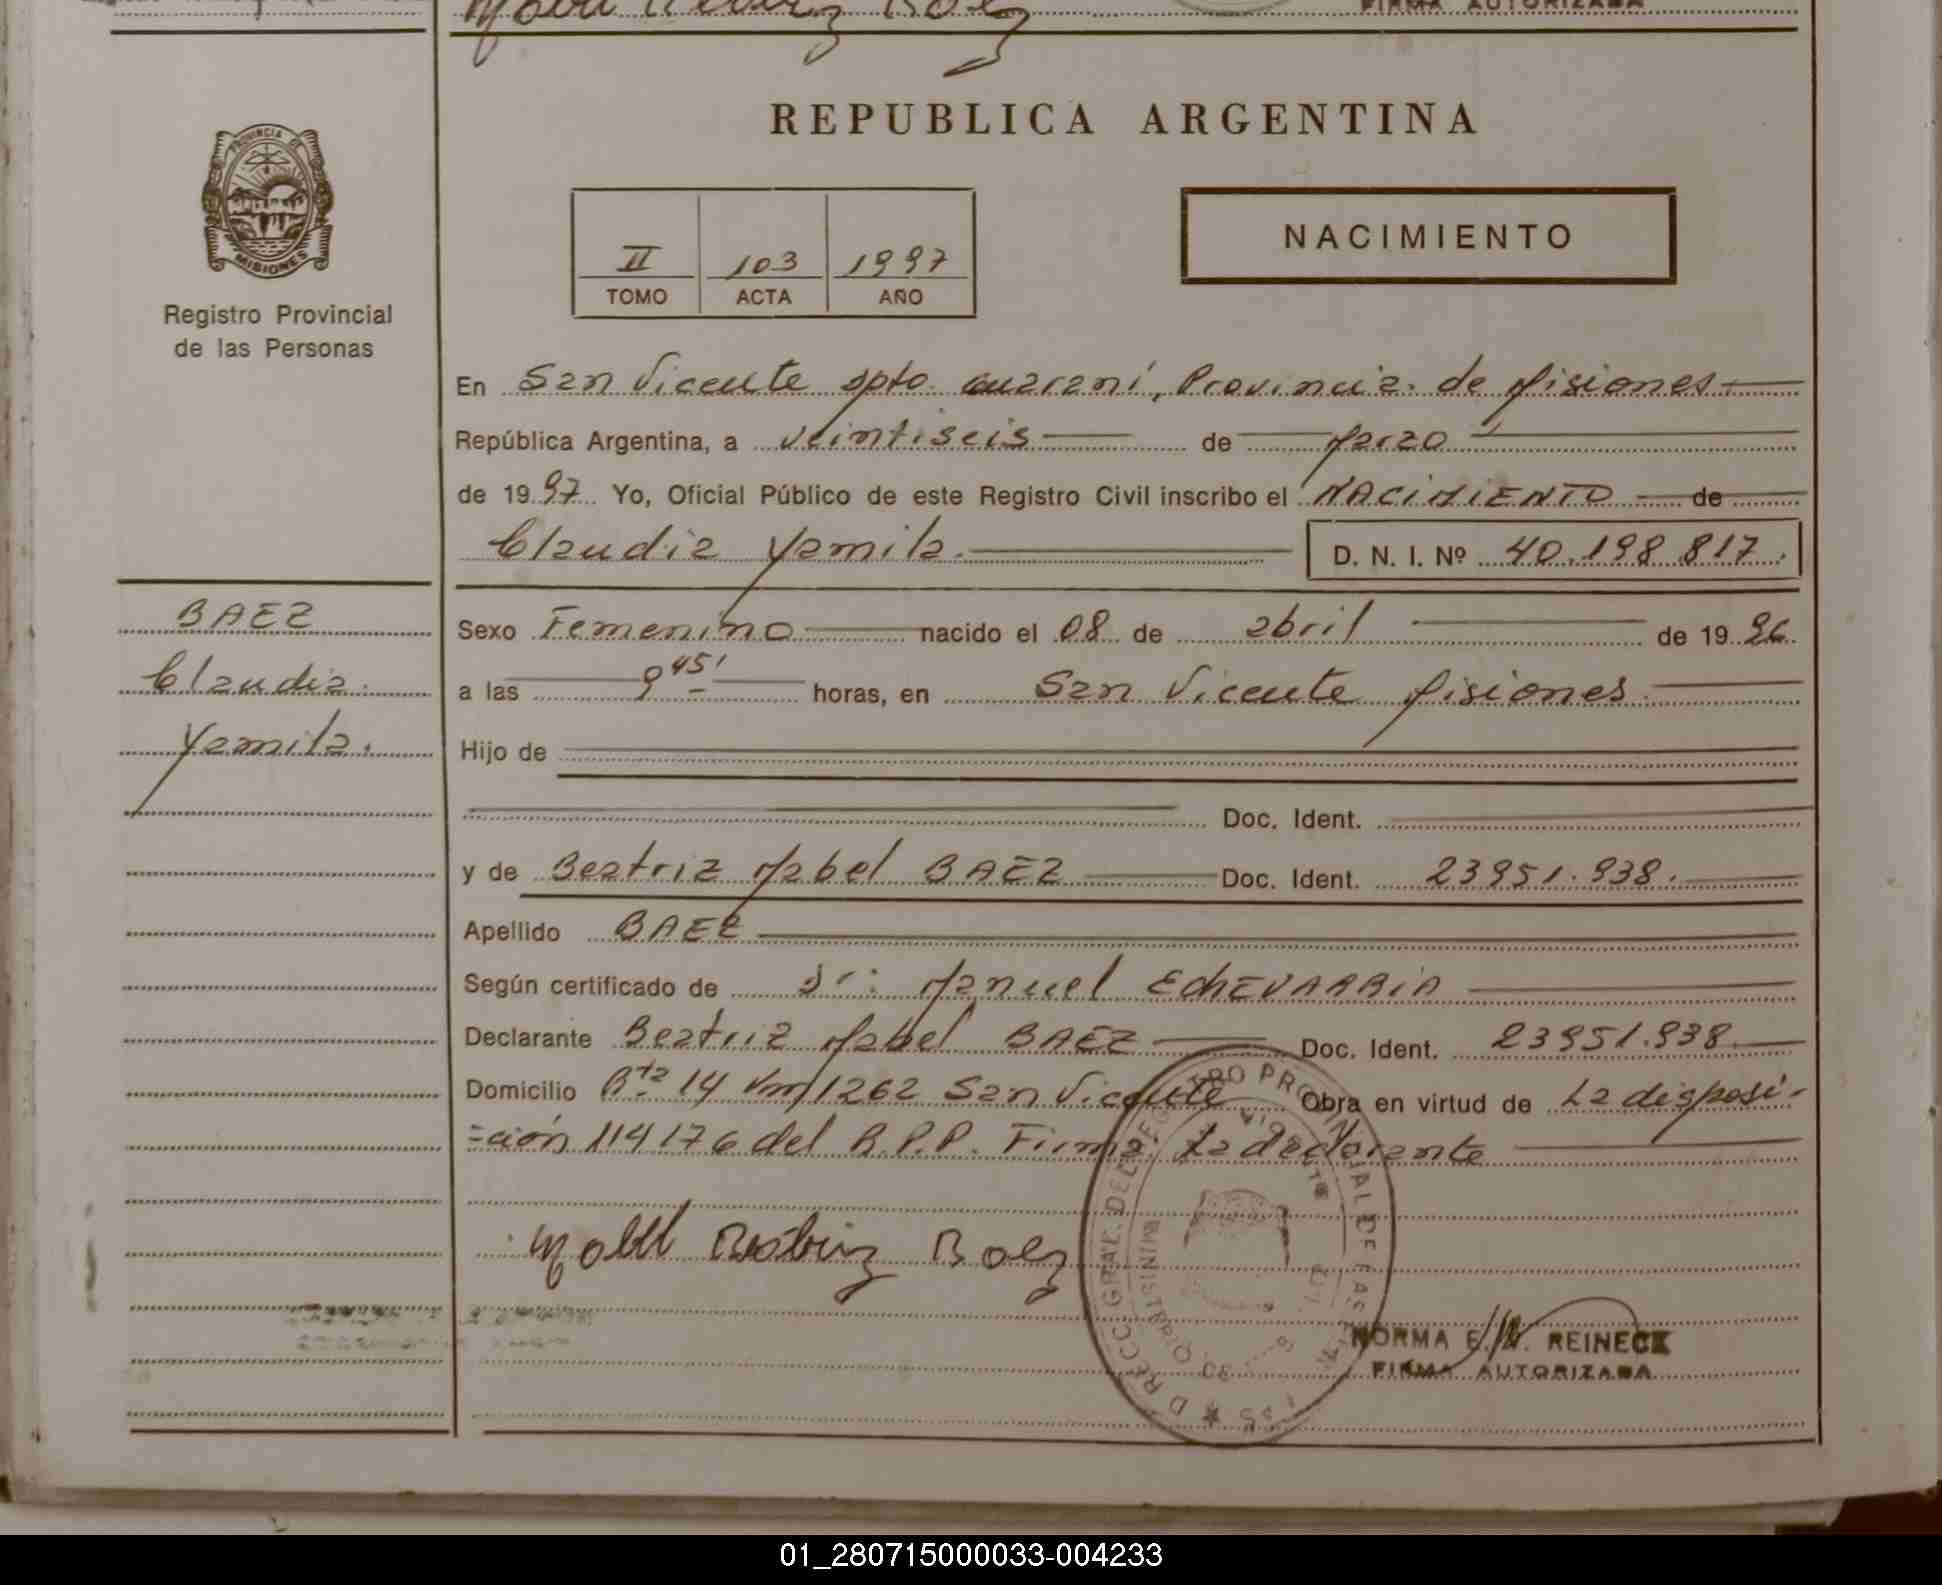 FIRMA AUTORIZADA
REPUBLICA ARGENTINA
PROVINCIA DE
MISIONES
Registro Provincial
de las Personas
II 103 1997
TOMO ACTA AÑO
NACIMIENTO
En San Vicente Dpto. Guaraní, Provincia de Misiones
República Argentina, a veintiseis de Marzo
de 1997 Yo, Oficial Público de este Registro Civil inscribo el NACIMIENTO de
Claudia Yamila. D. N. I. Nº 40.198.817.
BAEZ
Claudia
Yamila.
Sexo Femenino nacido el 08 de abril de 1996
a las 9 45' horas, en San Vicente Misiones
Hijo de
Doc. Ident.
y de Beatriz Mabel BAEZ Doc. Ident. 23951.938.
Apellido BAEZ
Según certificado de Dr: Manuel EchEVARRiA
Declarante Beatriz Mabel BAEZ Doc. Ident. 23951.938
Domicilio Rta 14 Km 1262 San Vicente Obra en virtud de La disposi-
=ción 114176 del R.P.P. Firma: La declarante
Mabel Beatriz Baez
NORMA E. REINECK
FIRMA AUTORIZADA
01_280715000033-004233